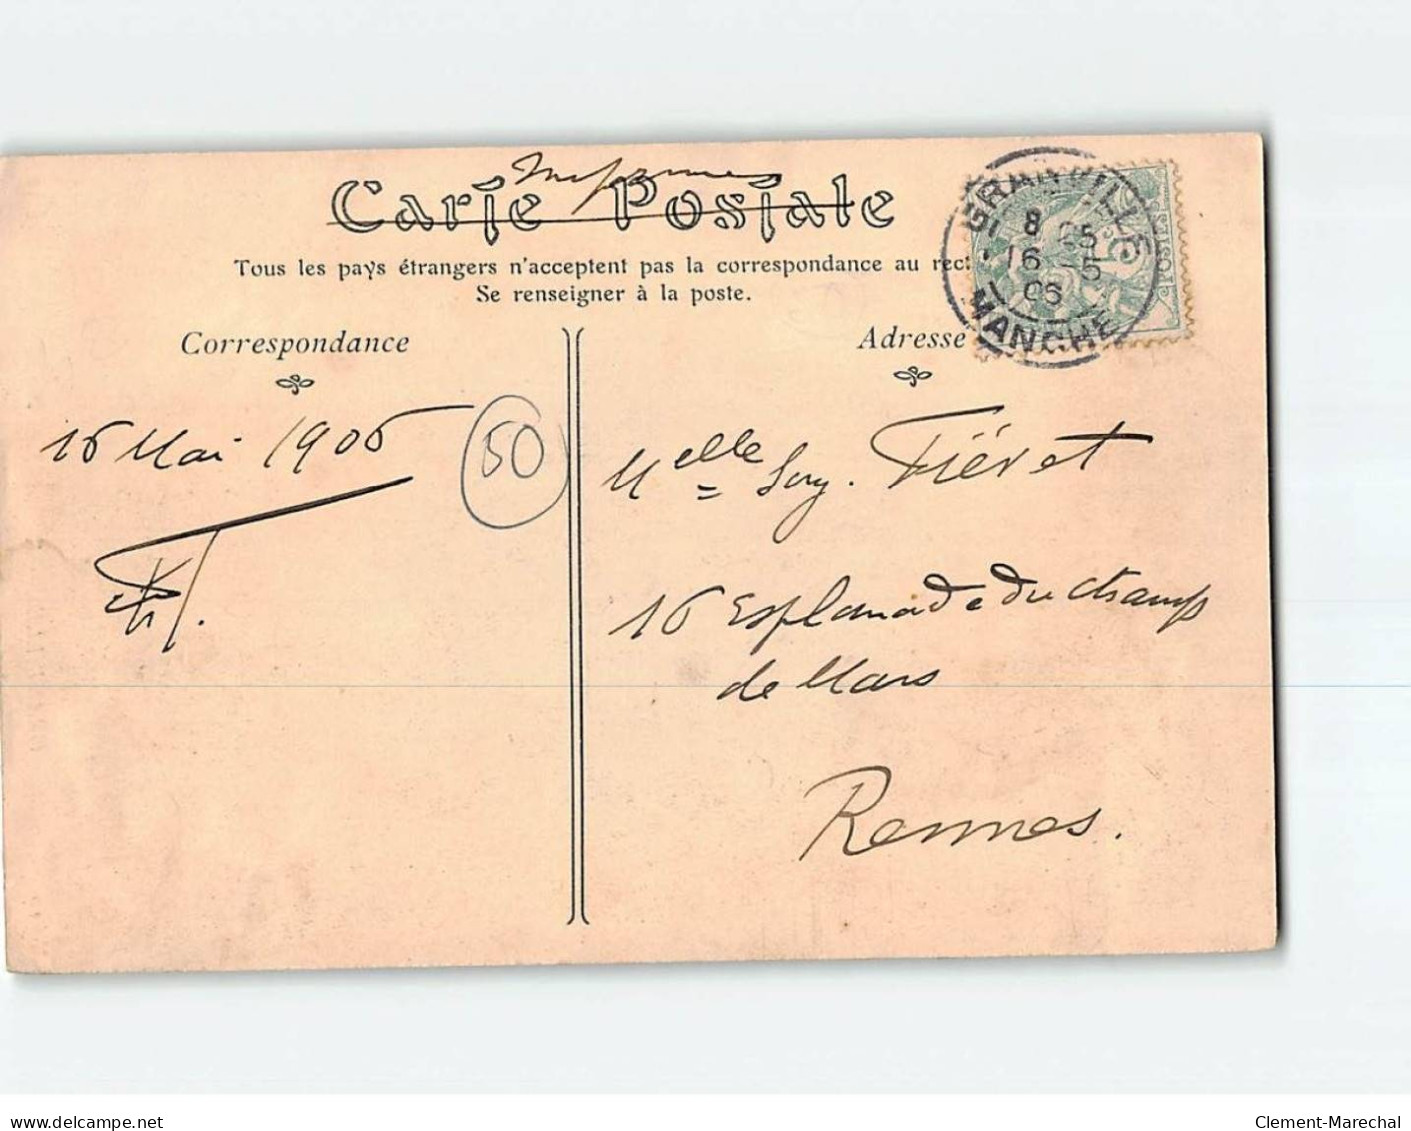 Imprimés
Carte Postale
Tous les pays étrangers n'acceptent pas la correspondance au rec
Se renseigner à la poste.
GRANVILLE
8 25
16 -5
06
MANCHE
Correspondance
Adresse
16 Mai 1906
50
Melle Fiévet
16 Esplanade du Champ
de Mars
Rennes.
delcampe.net
Clement-Marechal